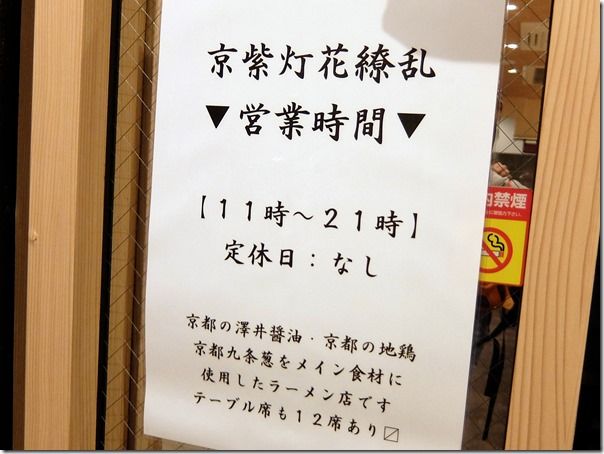 京紫灯花繚乱
▼営業時間▼
【11時～21時】
定休日：なし
京都の澤井醤油・京都の地鶏
京都九条葱をメイン食材に
使用したラーメン店です
テーブル席も12席あり〼
内禁煙